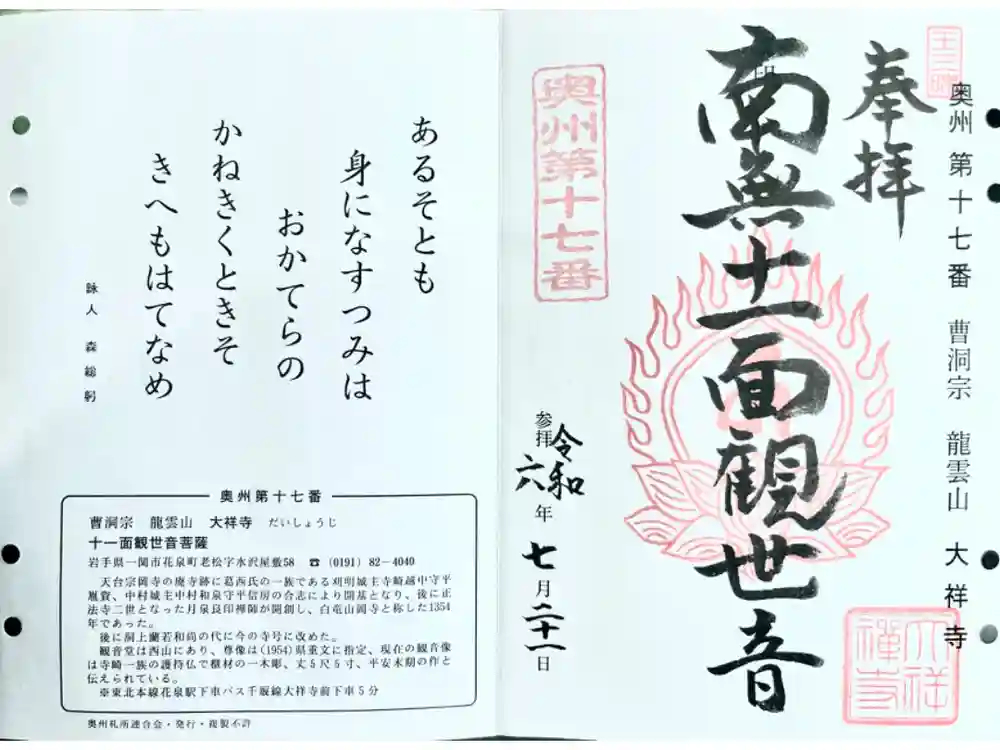 奥州 第十七番 曹洞宗 龍雲山 大祥寺
奉拝
南無十一面観世音
奥州第十七番
参拝 令和六年 七月二十一日
大祥禅寺
あるそとも
身になすつみは
おかてらの
かねきくときそ
きへもはてなめ
詠人 森 総 躬
奥州第十七番
曹洞宗 龍雲山 大祥寺 だいしょうじ
十一面観世音菩薩
岩手県一関市花泉町老松字水沢屋敷58 ☎(0191)82-4040
天台宗岡寺の廃寺跡に葛西氏の一族である刈明城主寺崎越中守平
胤賛、中村城主中村和泉守平信房の合志により開基となり、後に正
法寺二世となった月泉良印禅師が開創し、白竜山岡寺と称した1354
年であった。
後に洞上蘭若和尚の代に今の寺号に改めた。
観音堂は西山にあり、尊像は(1954)県重文に指定、現在の観音像
は寺崎一族の護持仏で榧材の一木彫、丈5尺5寸、平安末期の作と
伝えられている。
※東北本線花泉駅下車バス千厩線大祥寺前下車5分
奥州札所連合会・発行・複製不許